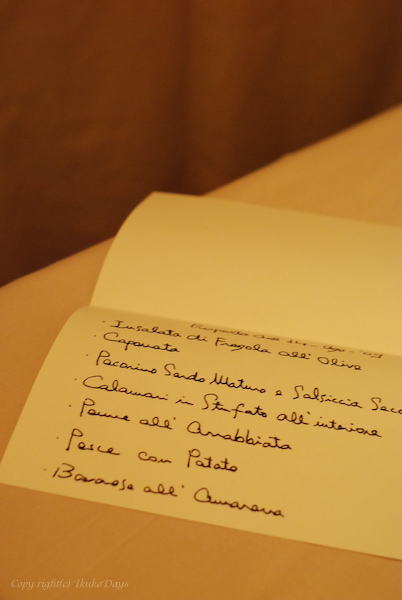 · Insalata di Fragola all' Oliva
· Caponata
· Pecorino Sardo Maturo e Salsiccia Secc
· Calamari in Stufato all' interiore
· Penne all' Arrabbiata
· Pesce con Patato
· Bavarese all' Amarena
Copy right(c) IkukoDays